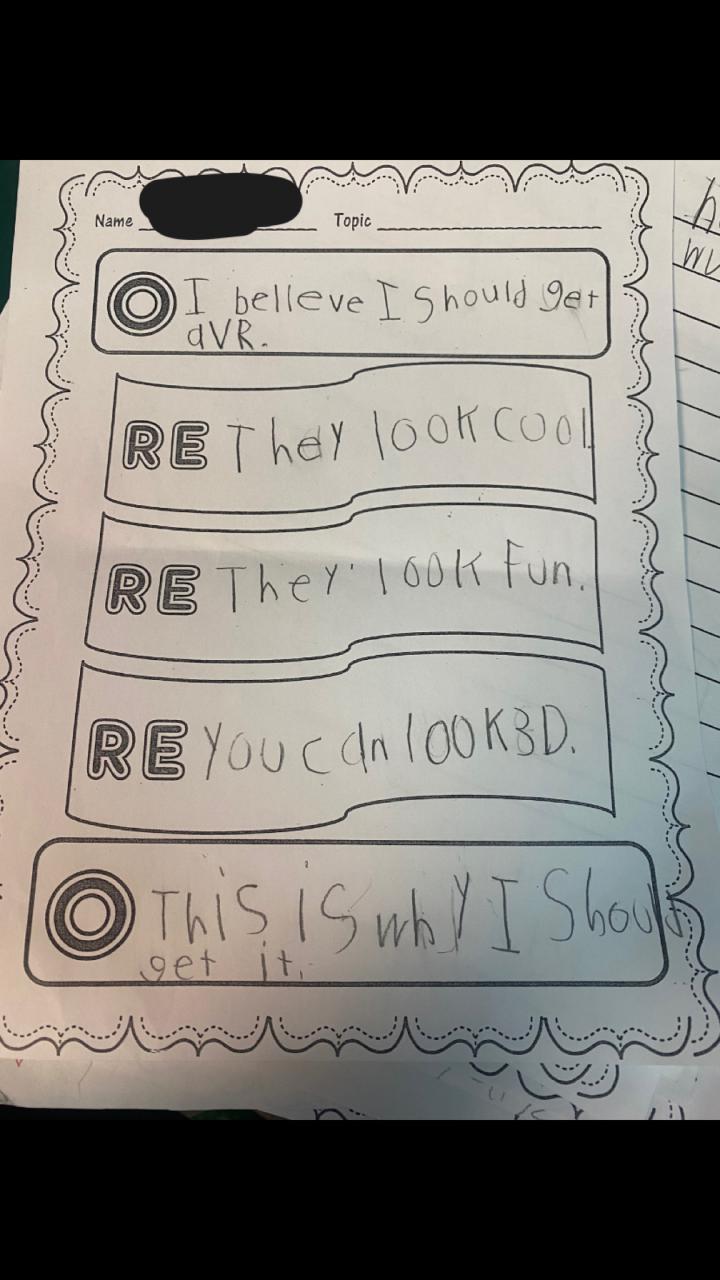 Name Topic
O I belleve I should get
a VR.
RE They look cool.
RE They look fun.
RE you can look 3D.
O This is why I Should
get it.